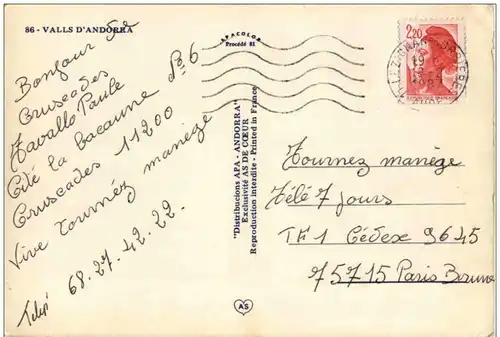 86 - VALLS D'ANDORRA
APACOLOR
Procédé 81
Bonjour de
Cruscades
Zavallo Paule
Cité la Bacaune No 6
Cruscades 11200
Vive tournéz manège
Telep 68.27.42.22
"Distribucions APA - ANDORRA"
Exclusivité AS DE CŒUR
Reproduction interdite - Printed in France
AS
2,20
REPUBLIQUE FRANÇAISE
AUDE
Tournez manège
Télé 7 jours
TF1 Cédex 3645
75715 Paris Brune